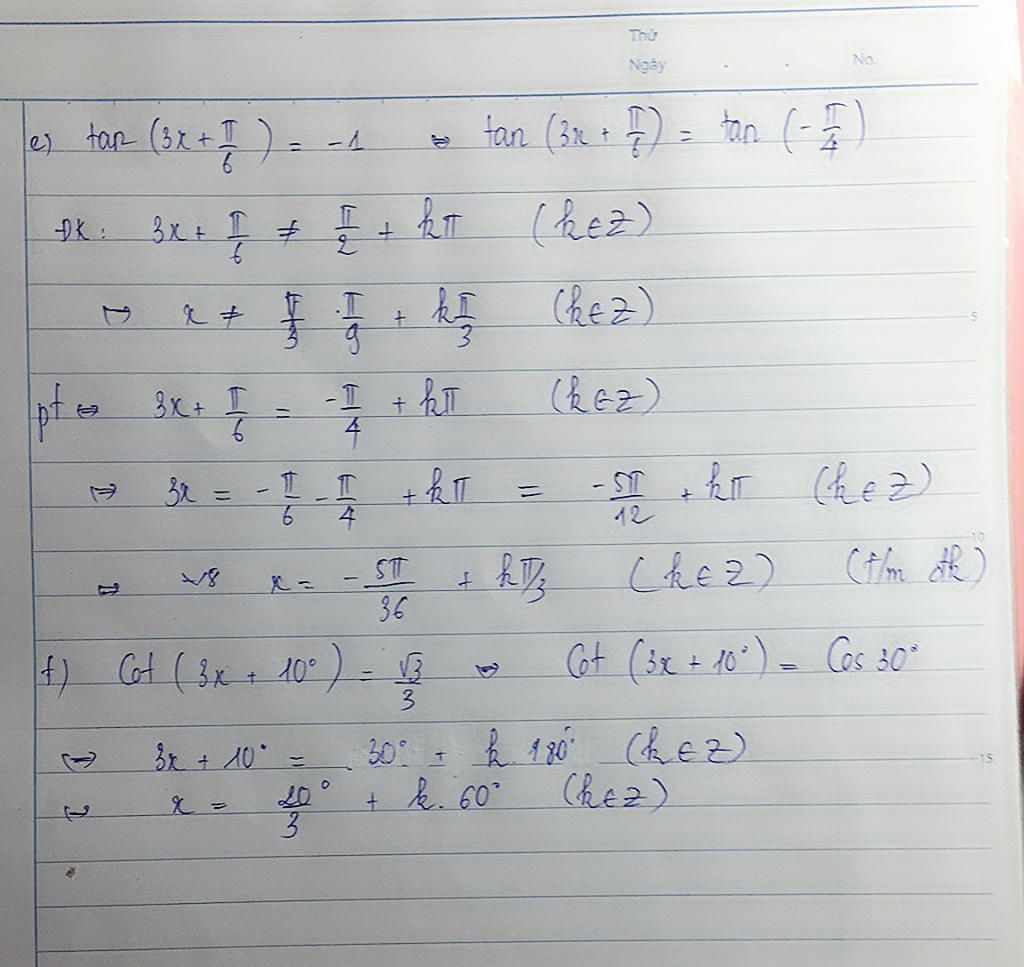 Thứ
Ngày . . No.
e) tan (3x + π/6) = -1 ⇔ tan (3x + π/6) = tan (-π/4)
ĐK: 3x + π/6 ≠ π/2 + kπ (k∈Z)
↦ x ≠ π/9 + kπ/3 (k∈Z)
5
pt ⇔ 3x + π/6 = -π/4 + kπ (k∈Z)
⇔ 3x = -π/6 - π/4 + kπ = -5π/12 + kπ (k∈Z)
10
⇔ x = -5π/36 + kπ/3 (k∈Z) (t/m đk)
f) Cot (3x + 10°) = √3/3 ⇔ Cot (3x + 10°) = Cos 30°
⇔ 3x + 10° = 30° + k.180° (k∈Z)
15
⇔ x = 20°/3 + k.60° (k∈Z)